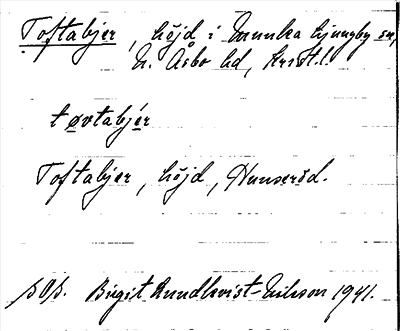 Toftabjer, höjd i Munka Ljungby sn,
N. Åsbo hd, Krist. l.
tøvtabjér
Toftabjer, höjd, Hunseröd.
Birgit Rundkvist-Nilsson 1941.